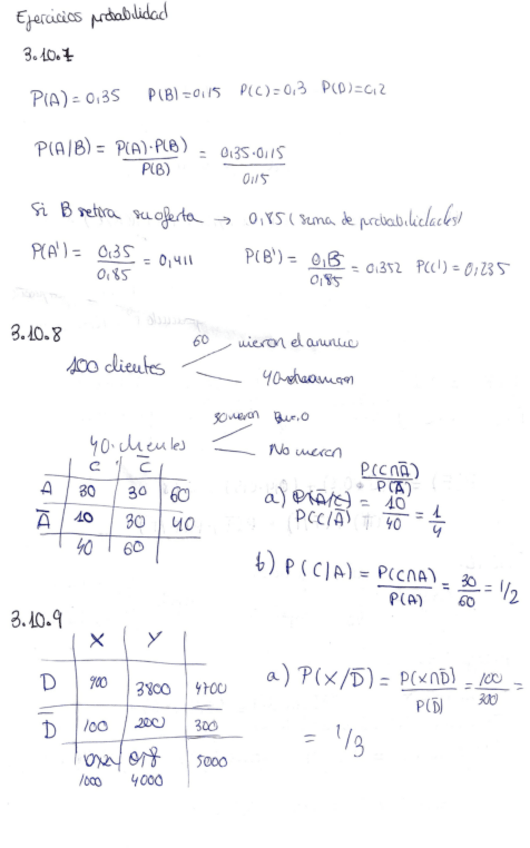 Ejercicios probabilidad
3.10.7
P(A) = 0,35 P(B) = 0,15 P(C) = 0,3 P(D) = 0,2
P(A/B) = P(A)·P(B) / P(B) = 0,35·0,15 / 0,15
Si B retira su oferta → 0,85 (suma de probabilidades)
P(A') = 0,35 / 0,85 = 0,411 P(B') = 0,3 / 0,85 = 0,352 P(C') = 0,235
3.10.8
100 clientes
60 vieron el anuncio
40
40 clientes
30 vieron
No vieron
C C̄
A 30 30 60
Ā 10 30 40
40 60
a) P(C/Ā) = P(C∩Ā) / P(Ā) = 10 / 40 = 1/4
b) P(C|A) = P(C∩A) / P(A) = 30 / 60 = 1/2
3.10.9
X Y
D 900 3800 4700
D̄ 100 200 300
0,2 0,8 5000
1000 4000
a) P(X/D̄) = P(X∩D̄) / P(D̄) = 100 / 300 =
= 1/3